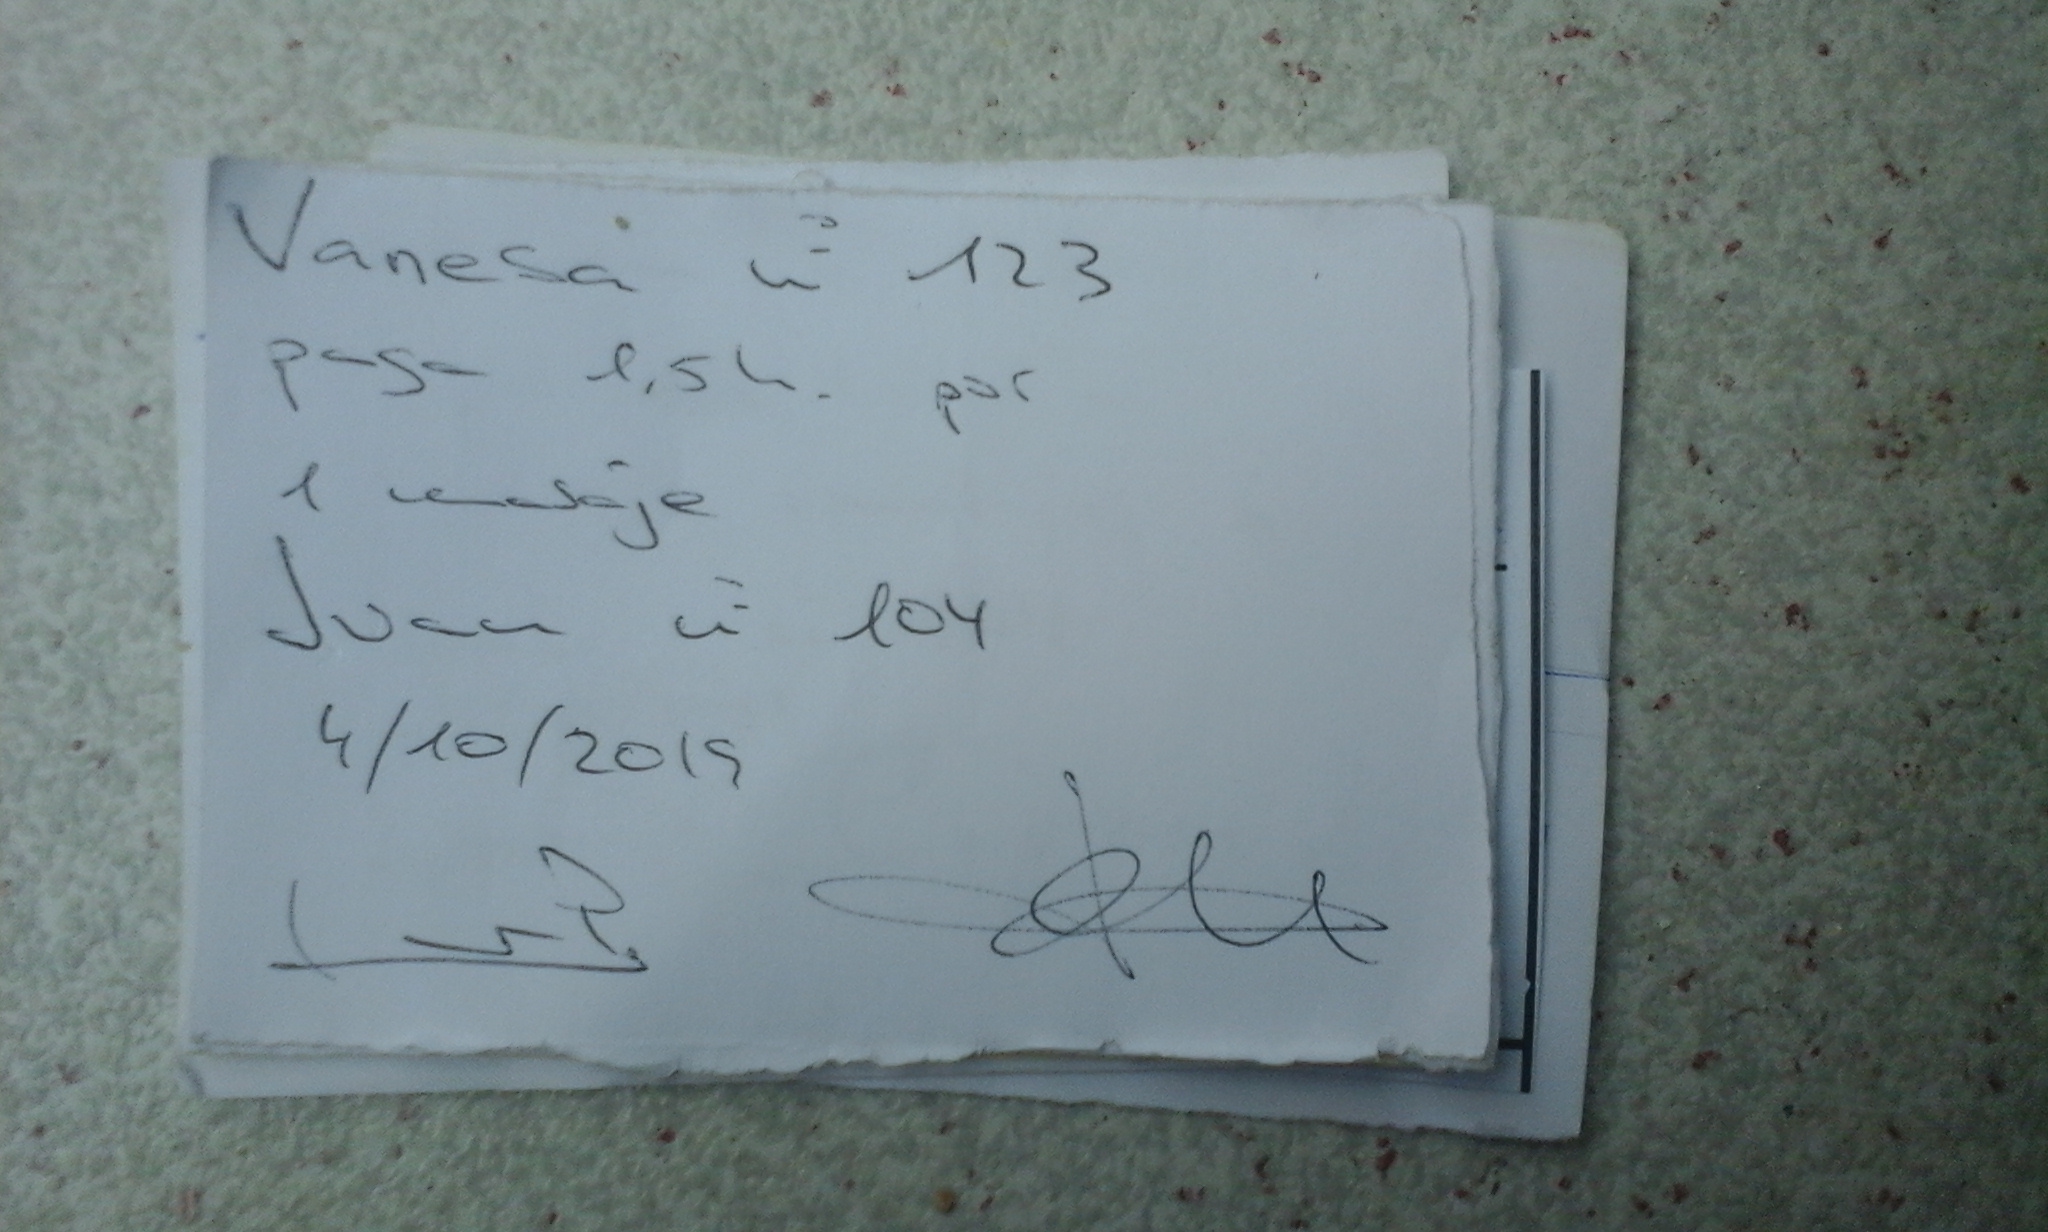 Vanesa nº 123
paga 1,5 h. por
1 masaje
Juan nº 104
4/10/2019